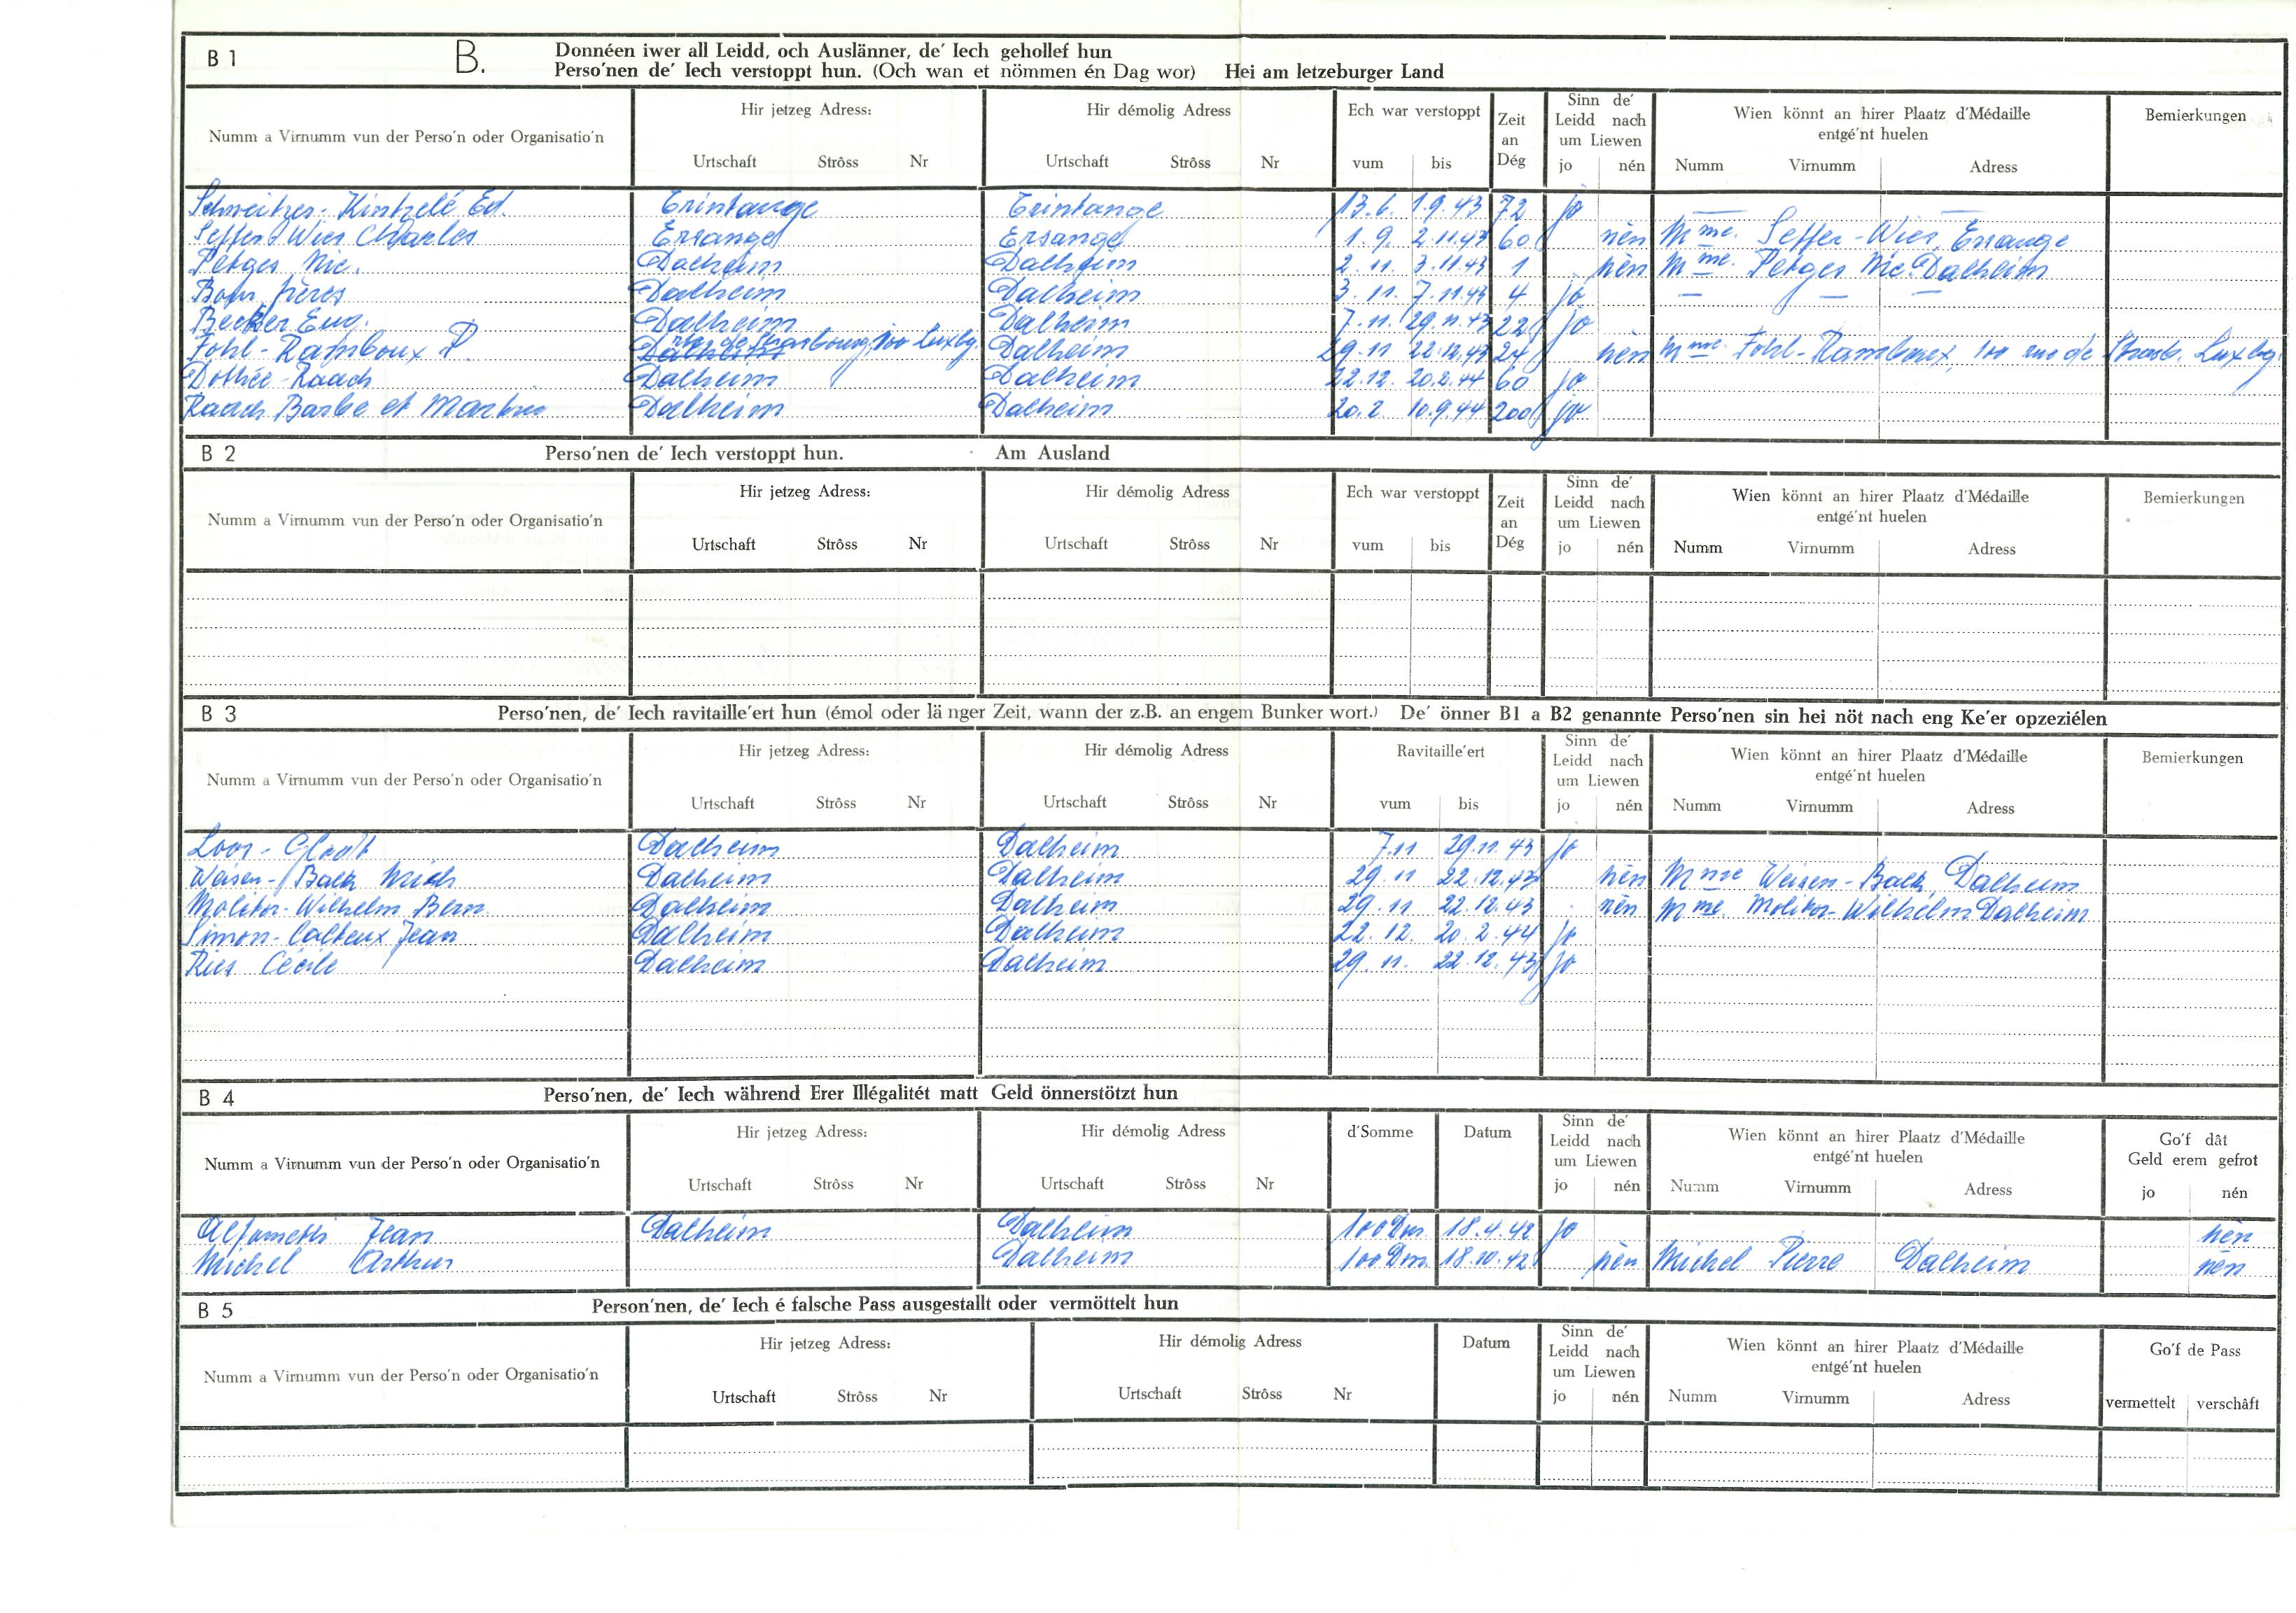 B 1 B. Donnéen iwer all Leidd, och Auslänner, de' Iech gehollef hun
Perso'nen de' Iech verstoppt hun. (Och wan et nömmen én Dag wor) Hei am letzeburger Land
Numm a Virnumm vun der Perso'n oder Organisatio'n Hir jetzeg Adress: Hir démolig Adress Ech war verstoppt Zeit an Dég Sinn de' Leidd nach um Liewen Wien könnt an hirer Plaatz d'Médaille entgé'nt huelen Bemierkungen
Urtschaft Ströss Nr Urtschaft Ströss Nr vum bis jo nén Numm Virnumm Adress
Schweitzer-Hintzelé Ed. Trintange Trintange 13.6. 1.9.43 72 jo
Seffer-Wies Charles Ersange Ersange 1.9. 2.11.43 60 nèn Mme. Seffer-Wies, Ersange
Petges Nic. Dalheim Dalheim 2.11. 3.11.43 1 nèn Mme. Petges Nic. Dalheim
frères Dalheim Dalheim 3.11. 7.11.43 4 jo — — —
Becker Eug. Dalheim Dalheim 7.11. 29.11.43 22 jo
Fohl-Ramboux P. Dalheim rue de Strasbourg, 100 Luxbg. Dalheim 29.11 22.12.43 24 nèn Mme. Fohl-Ramboux, 100 rue de Strasb. Luxbg.
Dothée-Raach Dalheim Dalheim 22.12. 20.2.44 60 jo
Raach Barbe et Dalheim Dalheim 20.2 10.9.44 200 jo
B 2 Perso'nen de' Iech verstoppt hun. Am Ausland
Numm a Virnumm vun der Perso'n oder Organisatio'n Hir jetzeg Adress: Hir démolig Adress Ech war verstoppt Zeit an Dég Sinn de' Leidd nach um Liewen Wien könnt an hirer Plaatz d'Médaille entgé'nt huelen Bemierkungen
Urtschaft Ströss Nr Urtschaft Ströss Nr vum bis jo nén Numm Virnumm Adress
B 3 Perso'nen, de' Iech ravitaille'ert hun (émol oder lä nger Zeit, wann der z.B. an engem Bunker wort.) De' önner B1 a B2 genannte Perso'nen sin hei nöt nach eng Ke'er opzeziélen
Numm a Virnumm vun der Perso'n oder Organisatio'n Hir jetzeg Adress: Hir démolig Adress Ravitaille'ert Sinn de' Leidd nach um Liewen Wien könnt an hirer Plaatz d'Médaille entgé'nt huelen Bemierkungen
Urtschaft Ströss Nr Urtschaft Ströss Nr vum bis jo nén Numm Virnumm Adress
Loos-Glodt Dalheim Dalheim 7.11 29.11.43 jo
Weisen-Back Mich Dalheim Dalheim 29.11 22.12.43 nèn Mme Weisen-Back, Dalheim
Molitor-Wilhelm Bern Dalheim Dalheim 29.11 22.12.43 nèn Mme. Molitor-Wilhelm Dalheim
Simon-Calteux Jean Dalheim Dalheim 22.12. 20.2.44 jo
Ries Cécile Dalheim Dalheim 29.11. 22.12.43 jo
B 4 Perso'nen, de' Iech während Erer Illégalitét matt Geld önnerstötzt hun
Numm a Virnumm vun der Perso'n oder Organisatio'n Hir jetzeg Adress: Hir démolig Adress d'Somme Datum Sinn de' Leidd nach um Liewen Wien könnt an hirer Plaatz d'Médaille entgé'nt huelen Go'f dât Geld erem gefrot
Urtschaft Ströss Nr Urtschaft Ströss Nr jo nén Numm Virnumm Adress jo nén
Jean Dalheim Dalheim 100 Dm 18.4.42 jo nèn
Michel Arthur Dalheim 100 Dm 18.10.42 nèn Michel Pierre Dalheim nèn
B 5 Person'nen, de' Iech é falsche Pass ausgestallt oder vermöttelt hun
Numm a Virnumm vun der Perso'n oder Organisatio'n Hir jetzeg Adress: Hir démolig Adress Datum Sinn de' Leidd nach um Liewen Wien könnt an hirer Plaatz d'Médaille entgé'nt huelen Go'f de Pass
Urtschaft Ströss Nr Urtschaft Ströss Nr jo nén Numm Virnumm Adress vermettelt verschâft